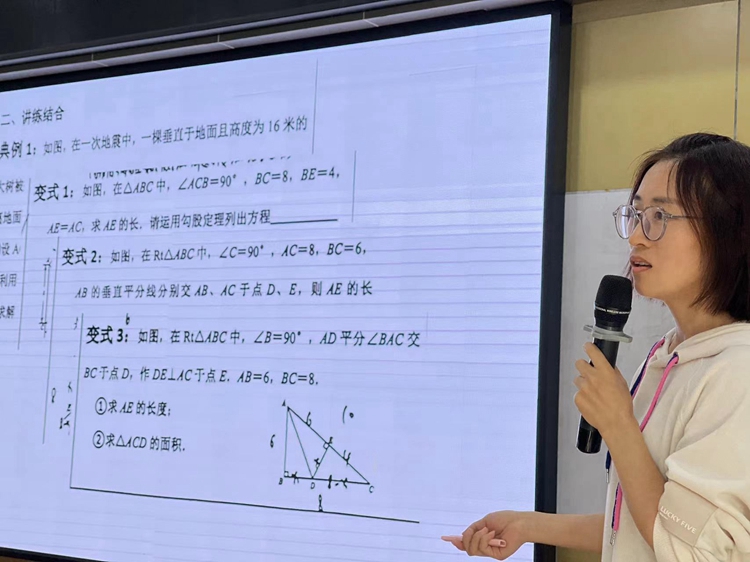 二、讲练结合
典例 1：如图，在一次地震中，一棵垂直于地面且高度为 16 米的
大树被
地面
设 A
利用
求解
变式 1：如图，在△ABC 中，∠ACB=90°，BC=8，BE=4，
AE=AC，求 AE 的长，请运用勾股定理列出方程
变式 2：如图，在 Rt△ABC 中，∠C=90°，AC=8，BC=6，
AB 的垂直平分线分别交 AB、AC 于点 D、E，则 AE 的长
变式 3：如图，在 Rt△ABC 中，∠B=90°，AD 平分∠BAC 交
BC 于点 D，作 DE⊥AC 于点 E．AB=6，BC=8．
①求 AE 的长度；
②求△ACD 的面积．
A
6
10
6
E
x
4
B
x
D
8-x
C
8
LUCKY FIVE